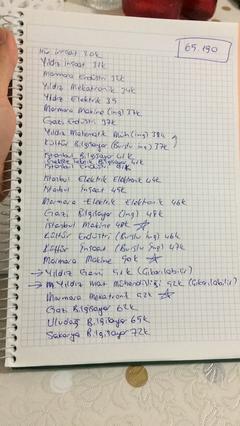 65.190
İTÜ İnşaat 30k
Yıldız İnşaat 31k
Marmara Endüstri 32k
Yıldız Mekatronik 34k
Yıldız Elektrik 35
Marmara Makine (ing) 37k
Gazi Endüstri 37k
Yıldız Matematik Müh (ing) 38k
Kültür Bilgisayar (Burslu ing) 37k
İstanbul Bilgisayar 41k
41k
İstanbul Endüstri
İstanbul Elektrik Elektronik 45k
İstanbul İnşaat 45k
Marmara Elektrik Elektronik 46k
Gazi Bilgisayar (ing) 48k
İstanbul Makine 48k
Kültür Endüstri (Burslu ing) 46k
Kültür İnşaat (Burslu ing) 47k
Marmara Makine 50k
Yıldız Gemi 51k (Çıkarılabilir)
Yıldız Mat. Mühendisliği 52k (Çıkarılabilir)
Marmara Mekatronik 52k
Gazi Bilgisayar 62k
Uludağ Bilgisayar 65k
Sakarya Bilgisayar 72k